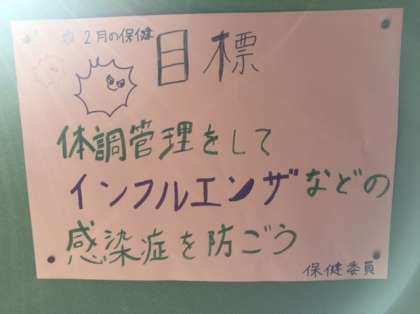 2月の保健
目標
体調管理をして
インフルエンザなどの
感染症を防ごう
保健委員